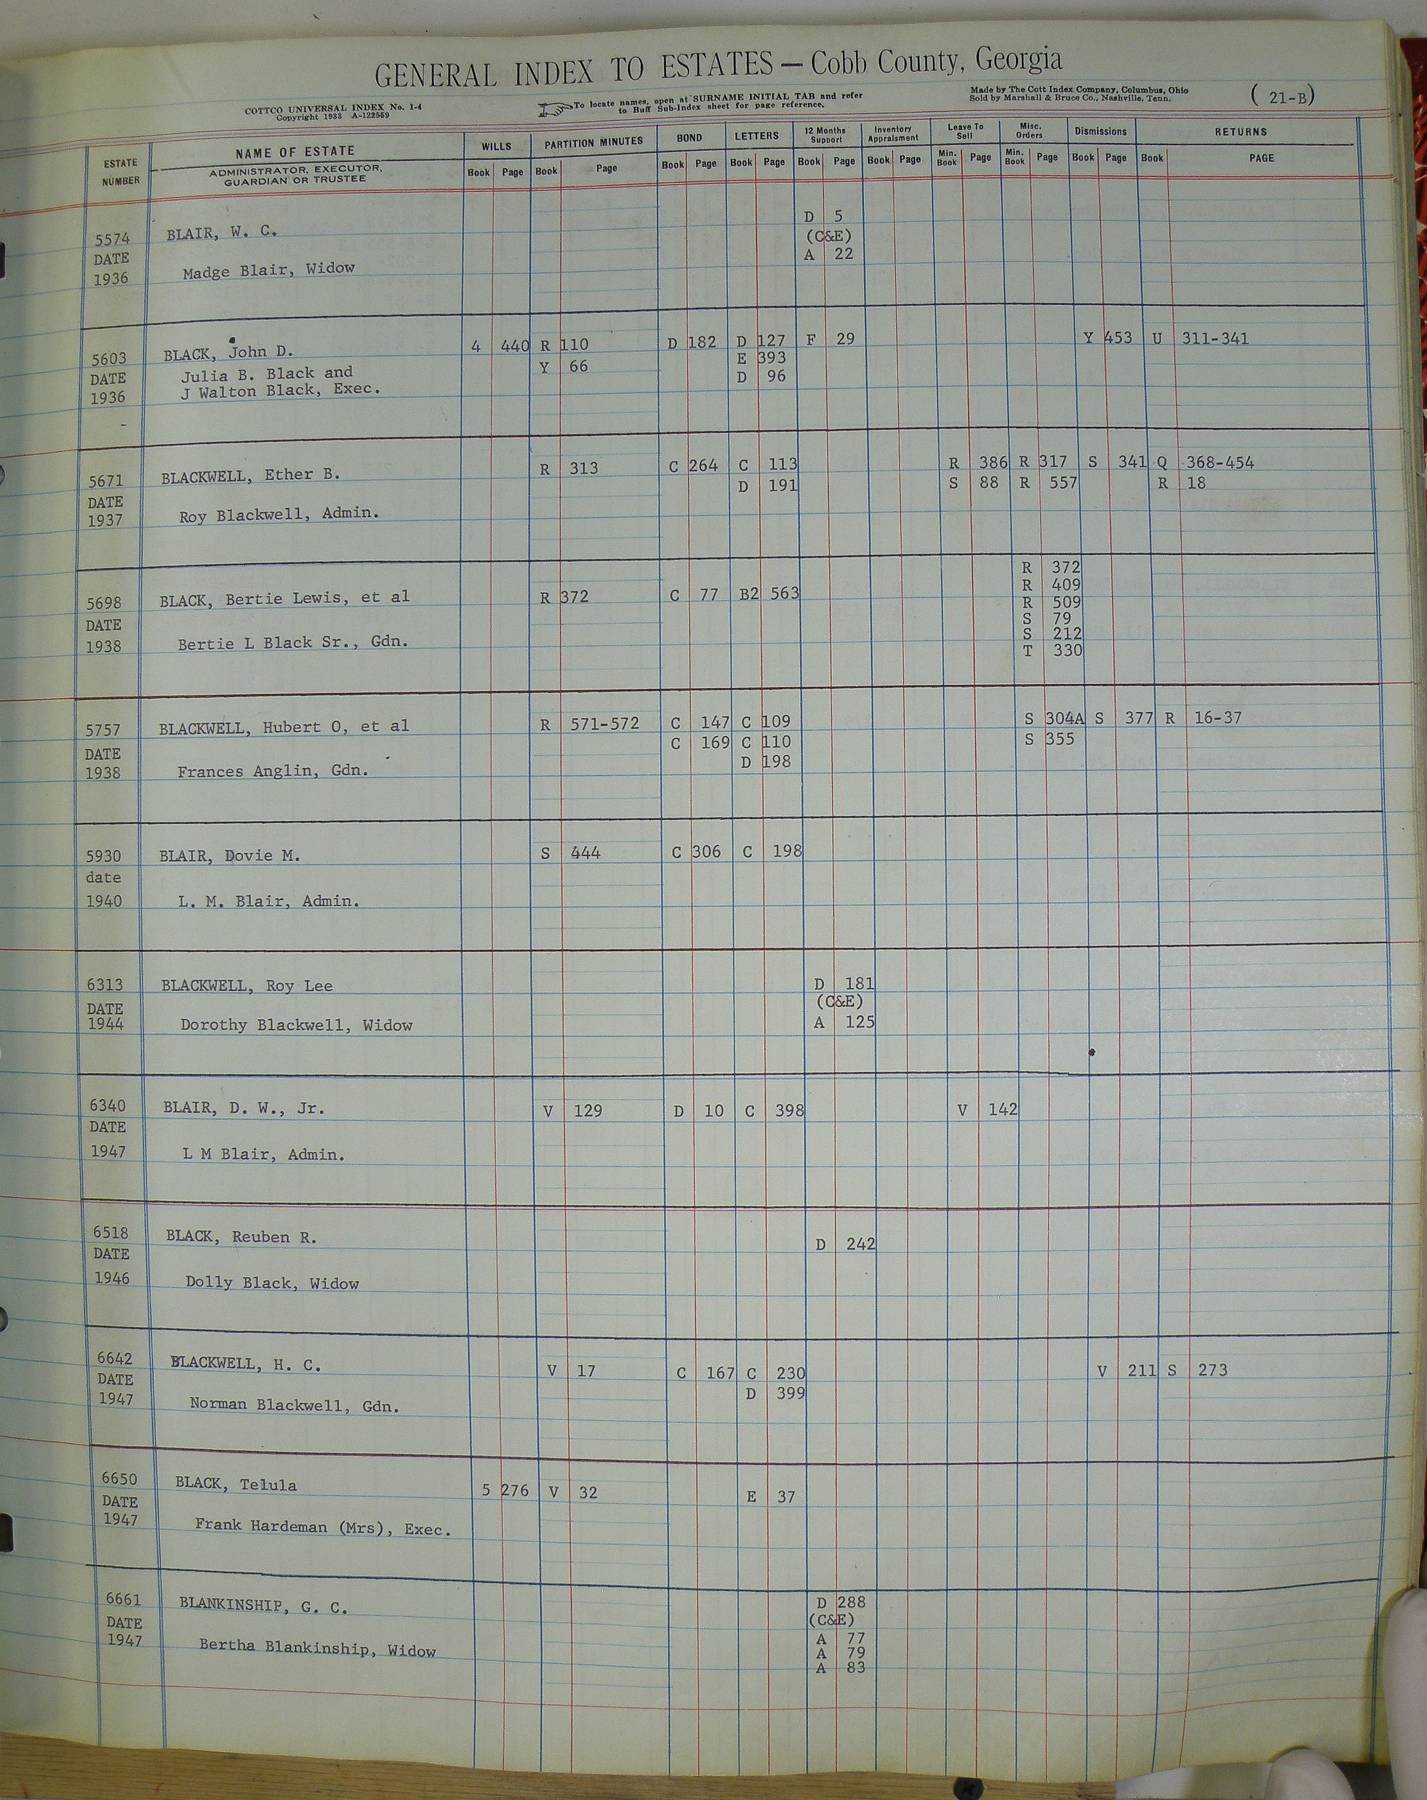 GENERAL INDEX TO ESTATES — Cobb County, Georgia
COTTCO UNIVERSAL INDEX No. I-4
Copyright 1933 A-122559
To locate names, open at SURNAME INITIAL TAB and refer
to Buff Sub-Index sheet for page reference.
Made by The Cott Index Company, Columbus, Ohio
Sold by Marshall & Bruce Co., Nashville, Tenn.
( 21-B)
ESTATE NUMBER
NAME OF ESTATE
ADMINISTRATOR, EXECUTOR,
GUARDIAN OR TRUSTEE
WILLS PARTITION MINUTES BOND LETTERS 12 Months Support Inventory Appraisment Leave To Sell Misc. Orders Dismissions RETURNS
Book Page Book Page Book Page Book Page Book Page Book Page Min. Book Page Min. Book Page Book Page Book PAGE
D 5
5574 BLAIR, W. C. (C&E)
DATE A 22
1936 Madge Blair, Widow
5603 BLACK, John D. 4 440 R 110 D 182 D 127 F 29 Y 453 U 311-341
Y 66 E 393
DATE Julia B. Black and D 96
1936 J Walton Black, Exec.
-
5671 BLACKWELL, Ether B. R 313 C 264 C 113 R 386 R 317 S 341 Q 368-454
DATE D 191 S 88 R 557 R 18
1937 Roy Blackwell, Admin.
R 372
R 409
5698 BLACK, Bertie Lewis, et al R 372 C 77 B2 563 R 509
DATE S 79
S 212
1938 Bertie L Black Sr., Gdn. T 330
5757 BLACKWELL, Hubert O, et al R 571-572 C 147 C 109 S 304A S 377 R 16-37
DATE C 169 C 110 S 355
1938 Frances Anglin, Gdn. D 198
5930 BLAIR, Dovie M. S 444 C 306 C 198
date
1940 L. M. Blair, Admin.
6313 BLACKWELL, Roy Lee D 181
DATE (C&E)
1944 Dorothy Blackwell, Widow A 125
6340 BLAIR, D. W., Jr. V 129 D 10 C 398 V 142
DATE
1947 L M Blair, Admin.
6518 BLACK, Reuben R. D 242
DATE
1946 Dolly Black, Widow
6642 BLACKWELL, H. C. V 17 C 167 C 230 V 211 S 273
DATE D 399
1947 Norman Blackwell, Gdn.
6650 BLACK, Telula 5 276 V 32 E 37
DATE
1947 Frank Hardeman (Mrs), Exec.
6661 BLANKINSHIP, G. C. D 288
DATE (C&E)
1947 Bertha Blankinship, Widow A 77
A 79
A 83